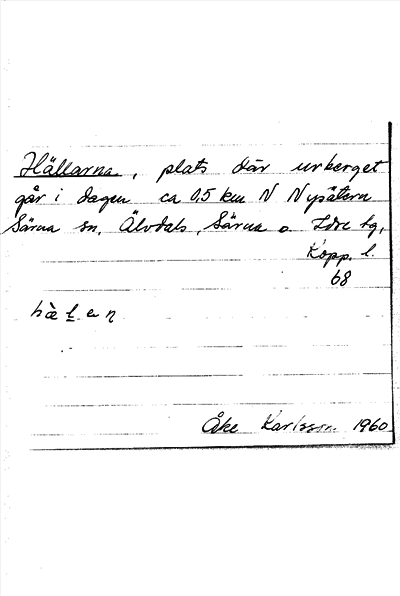 Hällarna, plats där urberget
går i dagen ca 0,5 km N Nysätern
Särna sn, Älvdals, Särna o. Idre tg,
Kopp. l.
68
hæ̀ḻen
Åke Karlsson 1960